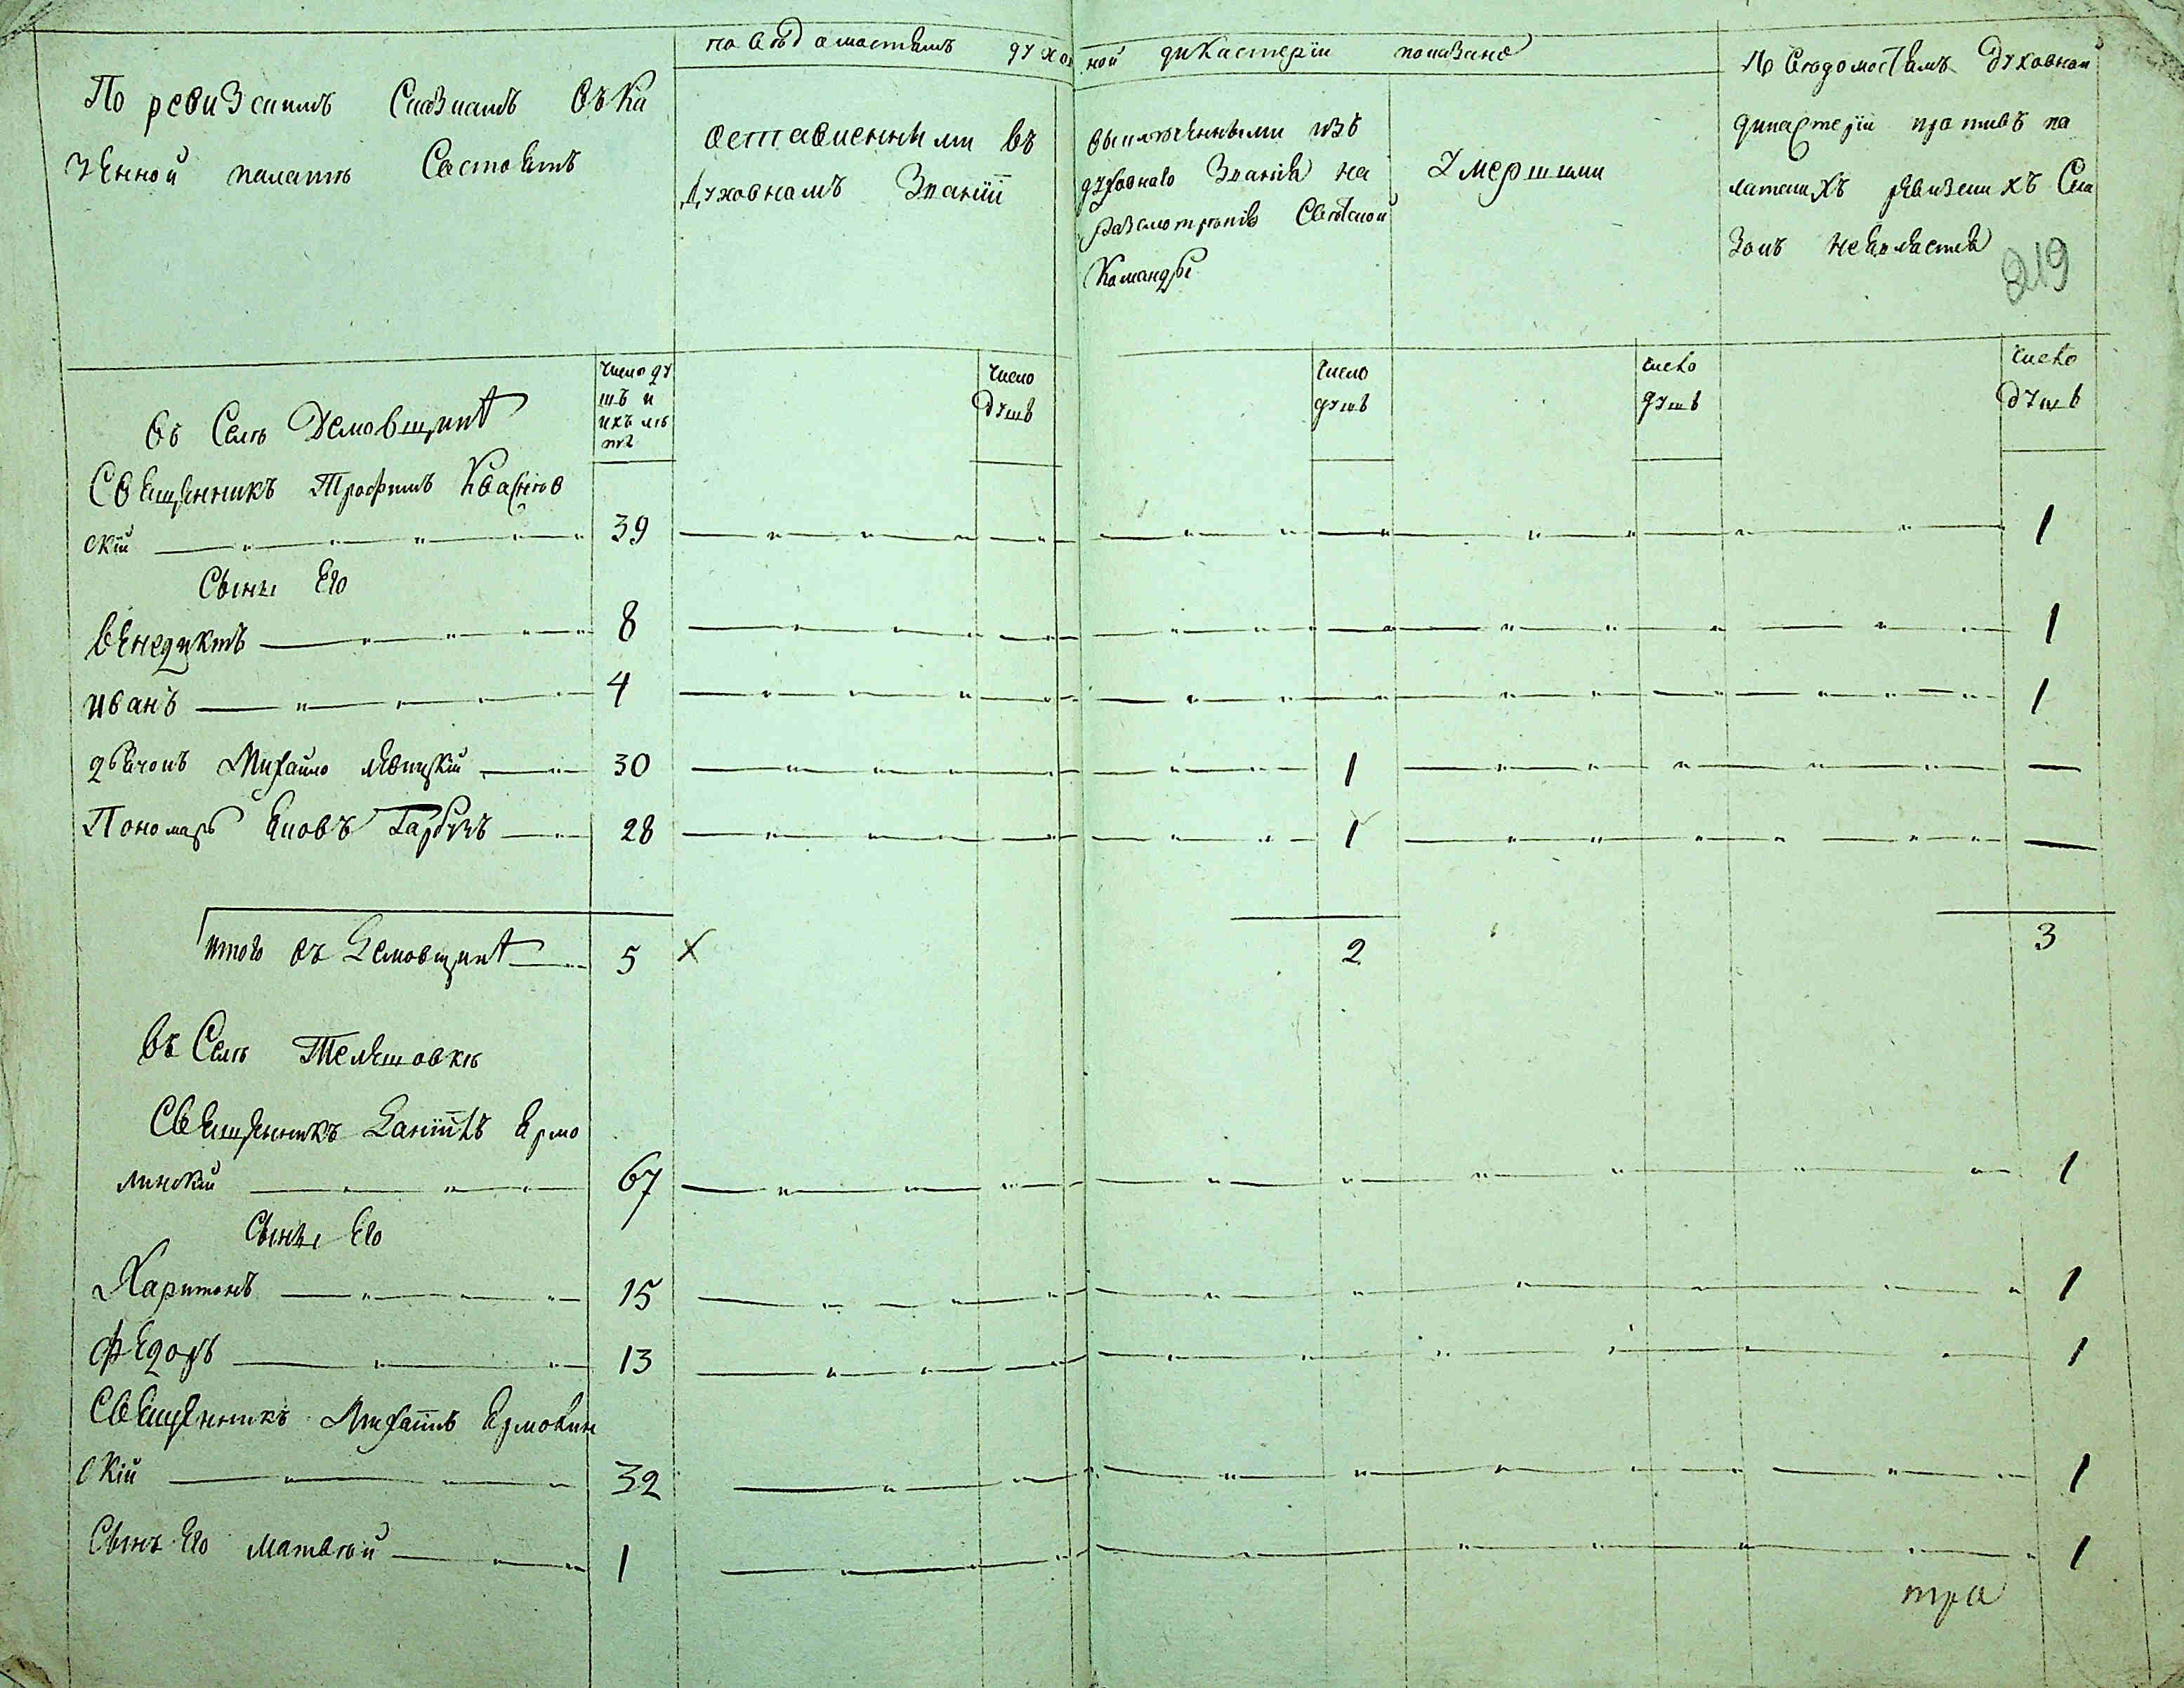 по вѣдомостямъ духовной дикастеріи показано
По ревизскимъ сказкамъ въ ка
зенной палатѣ состоитъ
оставленными въ
духовномъ званіи
выключенными изъ
духовнаго званія на
разсмотрѣніе свѣтской
команды
Умершими
По вѣдомостямъ духовной
дикастеріи противъ па
латскихъ ревизскихъ ска
зокъ неявляется
219
число ду
шъ и
ихъ лѣ
та
число
душъ
число
душъ
число
душъ
число
душъ
въ Селѣ Демовщинѣ
Священникъ Трофимъ Кваснѣв
скій 39 1
Сыны Его
Венедиктъ 8 1
иванъ 4 1
дьячокъ Михайло левицкій 30 1
Пономарь Яковъ Гарбузъ 28 1
итого въ Демовщинѣ 5 x 2 3
въ Селѣ Телешовкѣ
Священникъ Даніилъ Ярмо
линскій 67 1
Сыны Его
Харитонъ 15 1
Федоръ 13 1
Священникъ Михаилъ Ярмолин
скій 32 1
Сынъ Его Матвѣй 1 1
тра